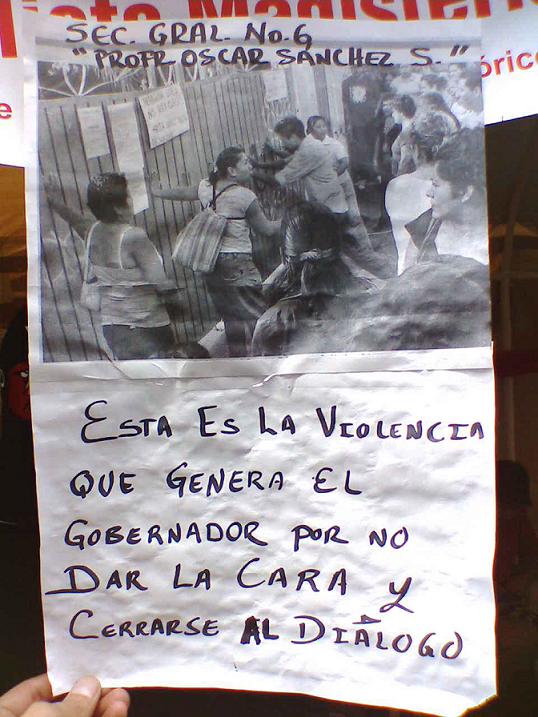 SEC. GRAL. No. 6
"PROFR OSCAR SÁNCHEZ S."
órico
ESTA ES LA VIOLENCIA
QUE GENERA EL
GOBERNADOR POR NO
DAR LA CARA Y
CERRARSE AL DIÁLOGO